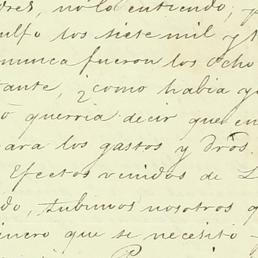 no lo entiendo; p
ulfo los siete mil y s
nunca fueron los ocho
tante, ¿como habia yo
ó querria decir que en
ara los gastos y dros.
Efectos venidos de L
do, tubimos nosotros q
inero que se necesitó